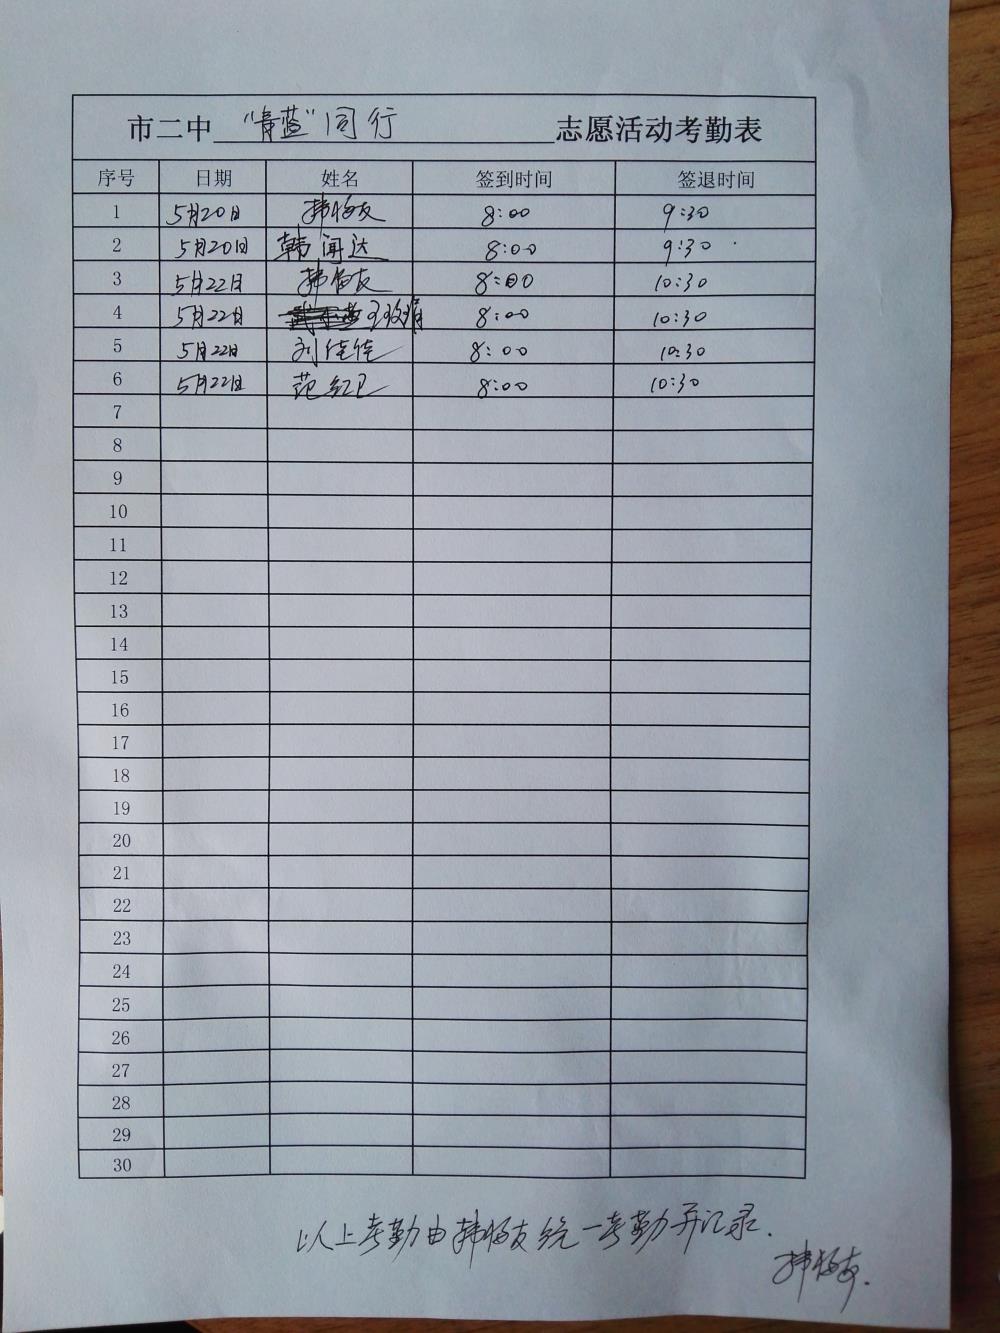 市二中 "青蓝"同行 志愿活动考勤表
序号 日期 姓名 签到时间 签退时间
1 5月20日 8:00 9:30
2 5月20日 韩闻达 8:00 9:30
3 5月22日 8:00 10:30
4 5月22日 8:00 10:30
5 5月22日 刘佳佳 8:00 10:30
6 5月22日 范红卫 8:00 10:30
7
8
9
10
11
12
13
14
15
16
17
18
19
20
21
22
23
24
25
26
27
28
29
30
以上考勤由 统一考勤并记录.